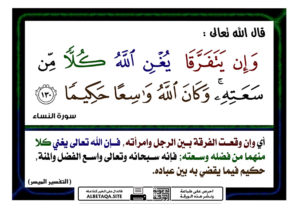 قال الله تعالى :
وَإِن يَتَفَرَّقَا يُغْنِ اللَّهُ كُلًّا مِّن
سَعَتِهِۦ ۚ وَكَانَ اللَّهُ وَاسِعًا حَكِيمًا ١٣٠
سورة النساء
أي وإن وقعت الفرقة بين الرجل وامرأته، فإن الله تعالى يغني كلا
منهما من فضله وسعته؛ فإنه سبحانه وتعالى واسع الفضل والمنة،
حكيم فيما يقضي به بين عباده.
(التفسير الميسر)
ALBETAQA.SITE